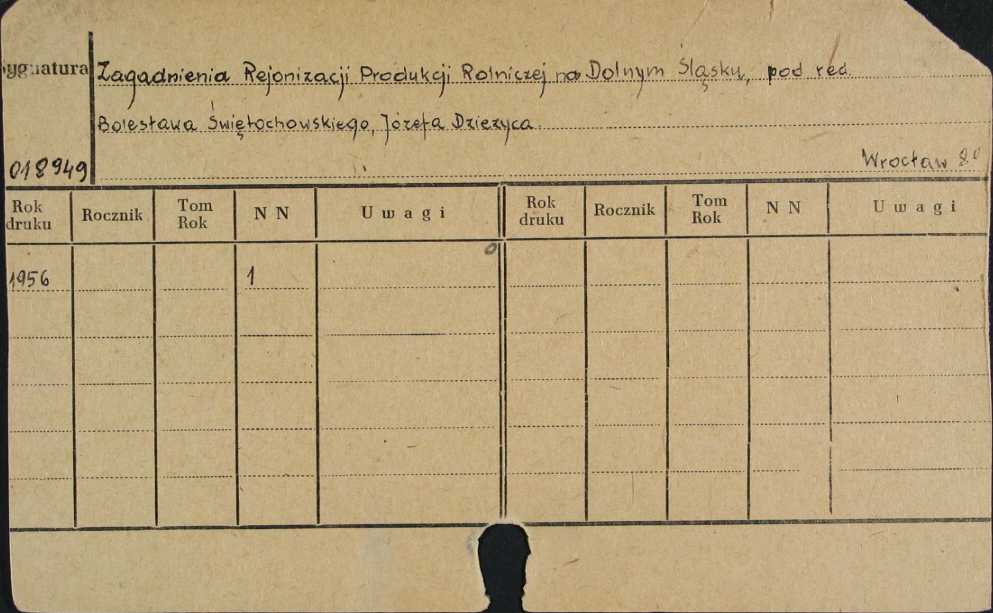 Sygnatura Zagadnienia Rejonizacji Produkcji Rolniczej na Dolnym Śląsku, pod red.
Bolesława Świętochowskiego, Józefa Dzieżyca.
018949 Wrocław 8°
Rok druku Rocznik Tom Rok N N Uwagi Rok druku Rocznik Tom Rok N N Uwagi
1956 1